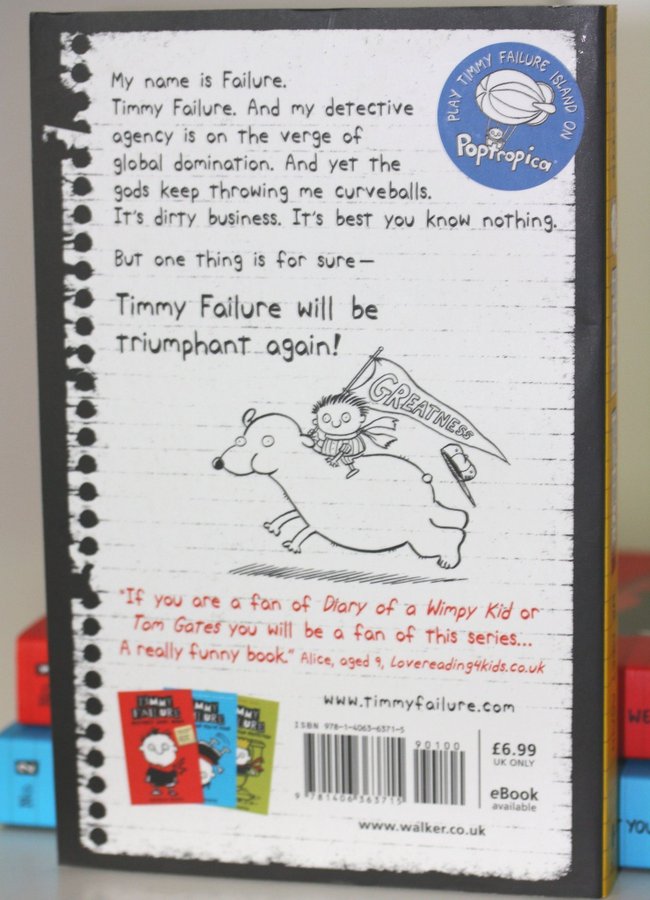 My name is Failure.
Timmy Failure. And my detective
agency is on the verge of
global domination. And yet the
gods keep throwing me curveballs.
It's dirty business. It's best you know nothing.
But one thing is for sure—
Timmy Failure will be
triumphant again!
PLAY TIMMY FAILURE ISLAND ON
Poptropica
GREATNESS
"If you are a fan of Diary of a Wimpy Kid or
Tom Gates you will be a fan of this series...
A really funny book." Alice, aged 9, Lovereading4kids.co.uk
TIMMY
FAILURE
TIMMY
FAILURE
TIMMY
FAILURE
www.timmyfailure.com
ISBN 978-1-4063-6371-5
90100
9 781406 363715
£6.99
UK ONLY
eBook
available
www.walker.co.uk
No. 2